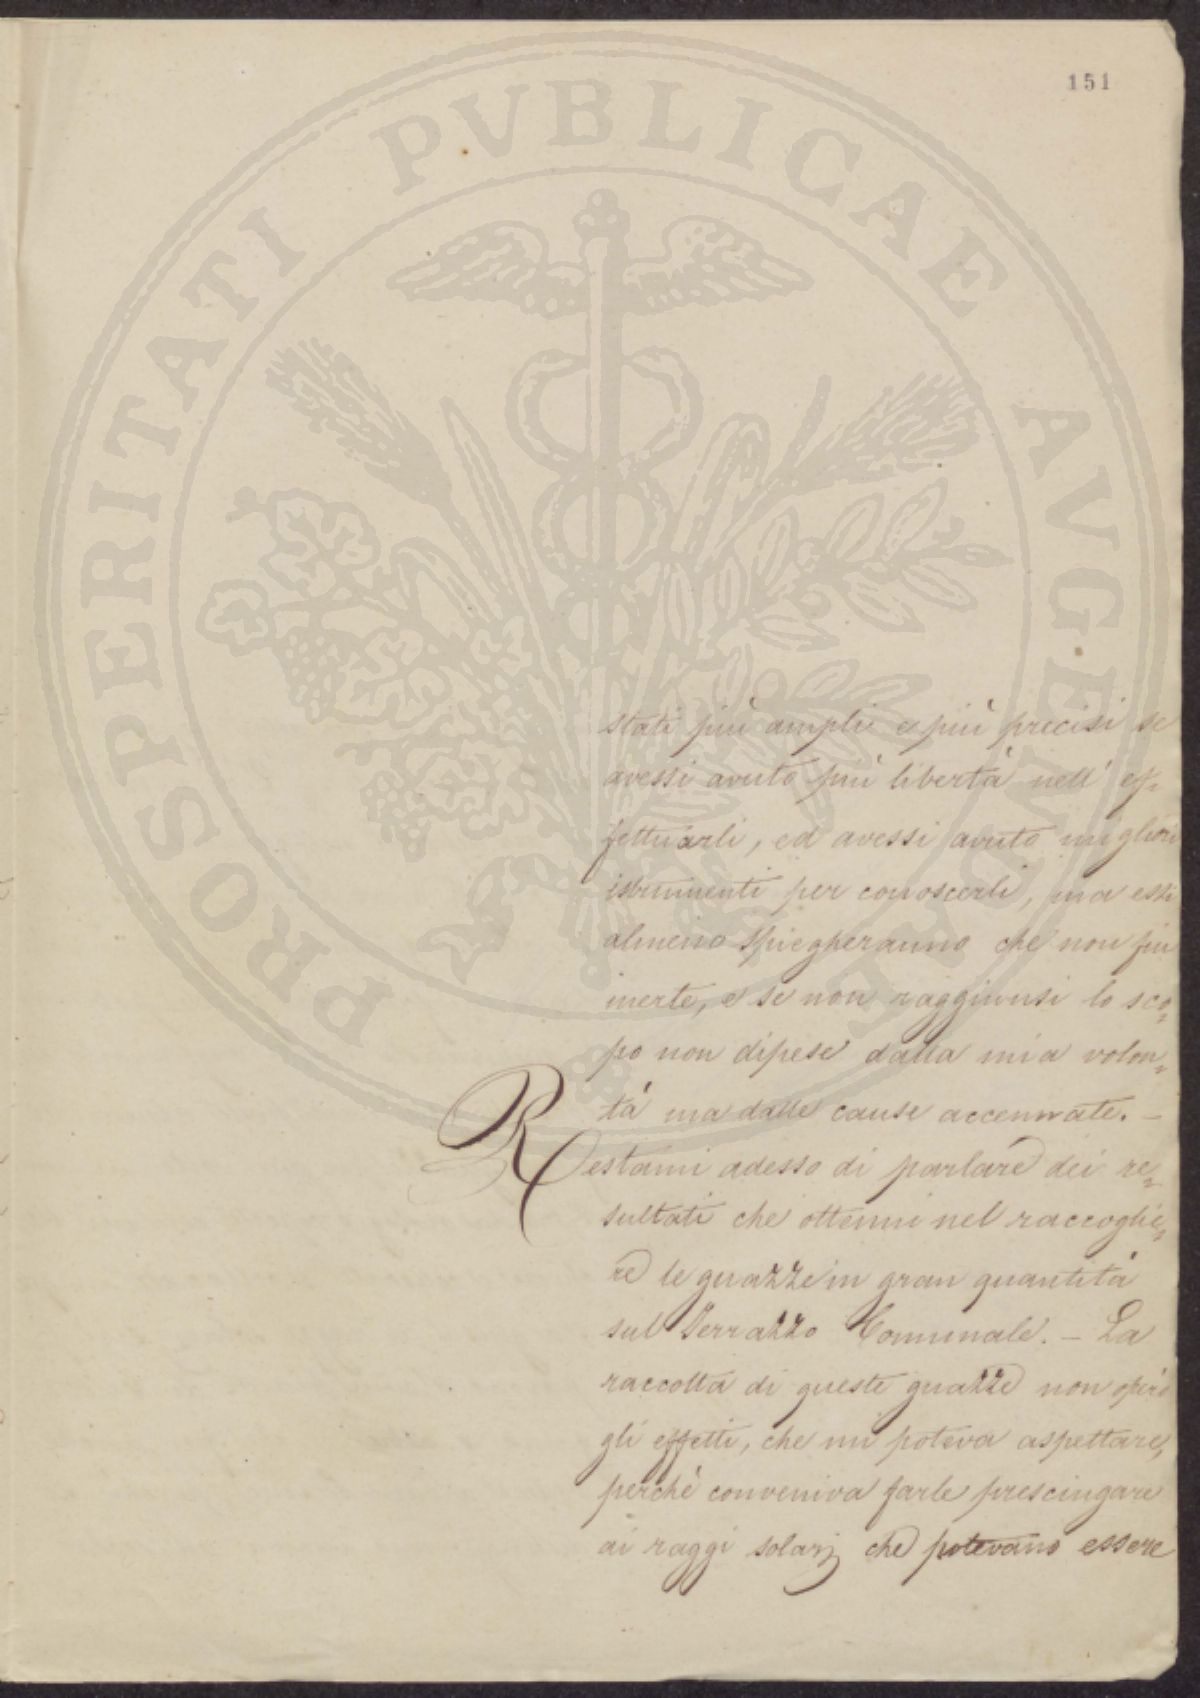 151
PROSPERITATI PVBLICAE AVGENDAE
stati più ampli e più precisi se
avessi avuto più libertà nell' ef=
fettuarli, ed avessi avuto migliori
istrumenti per conoscerli, ma essi
almeno spiegheranno che non fui
inerte, e se non raggiunsi lo sco=
po non dipese dalla mia volon=
tà ma dalle cause accennate. –
Restami adesso di parlare dei re=
sultati che ottenni nel raccoglie=
re le guazze in gran quantità
sul Terrazzo Comunale. – La
raccolta di queste guazze non operò
gli effetti, che mi poteva aspettare,
perchè conveniva farle prescingare
ai raggi solarj che potevano essere